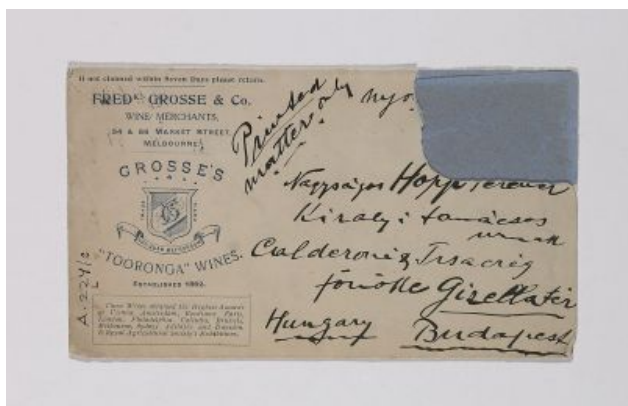 If not claimed within Seven Days please return.
FREDK. GROSSE & Co.
WINE MERCHANTS,
54 & 56 MARKET STREET,
MELBOURNE.
GROSSE'S
"TOORONGA" WINES.
ESTABLISHED 1862.
These Wines obtained the Highest Awards
at Vienna, Amsterdam, Bordeaux, Paris,
London, Philadelphia, Calcutta, Brussels,
Melbourne, Sydney, Adelaide and Dunedin
Printed
matter only
nyo.
Nagyságos Hopp Ferencz
Kiraly: tanácsos
urnak
Calderoni és Társa cég
főnöke Gizellatér
Hungary Budapest